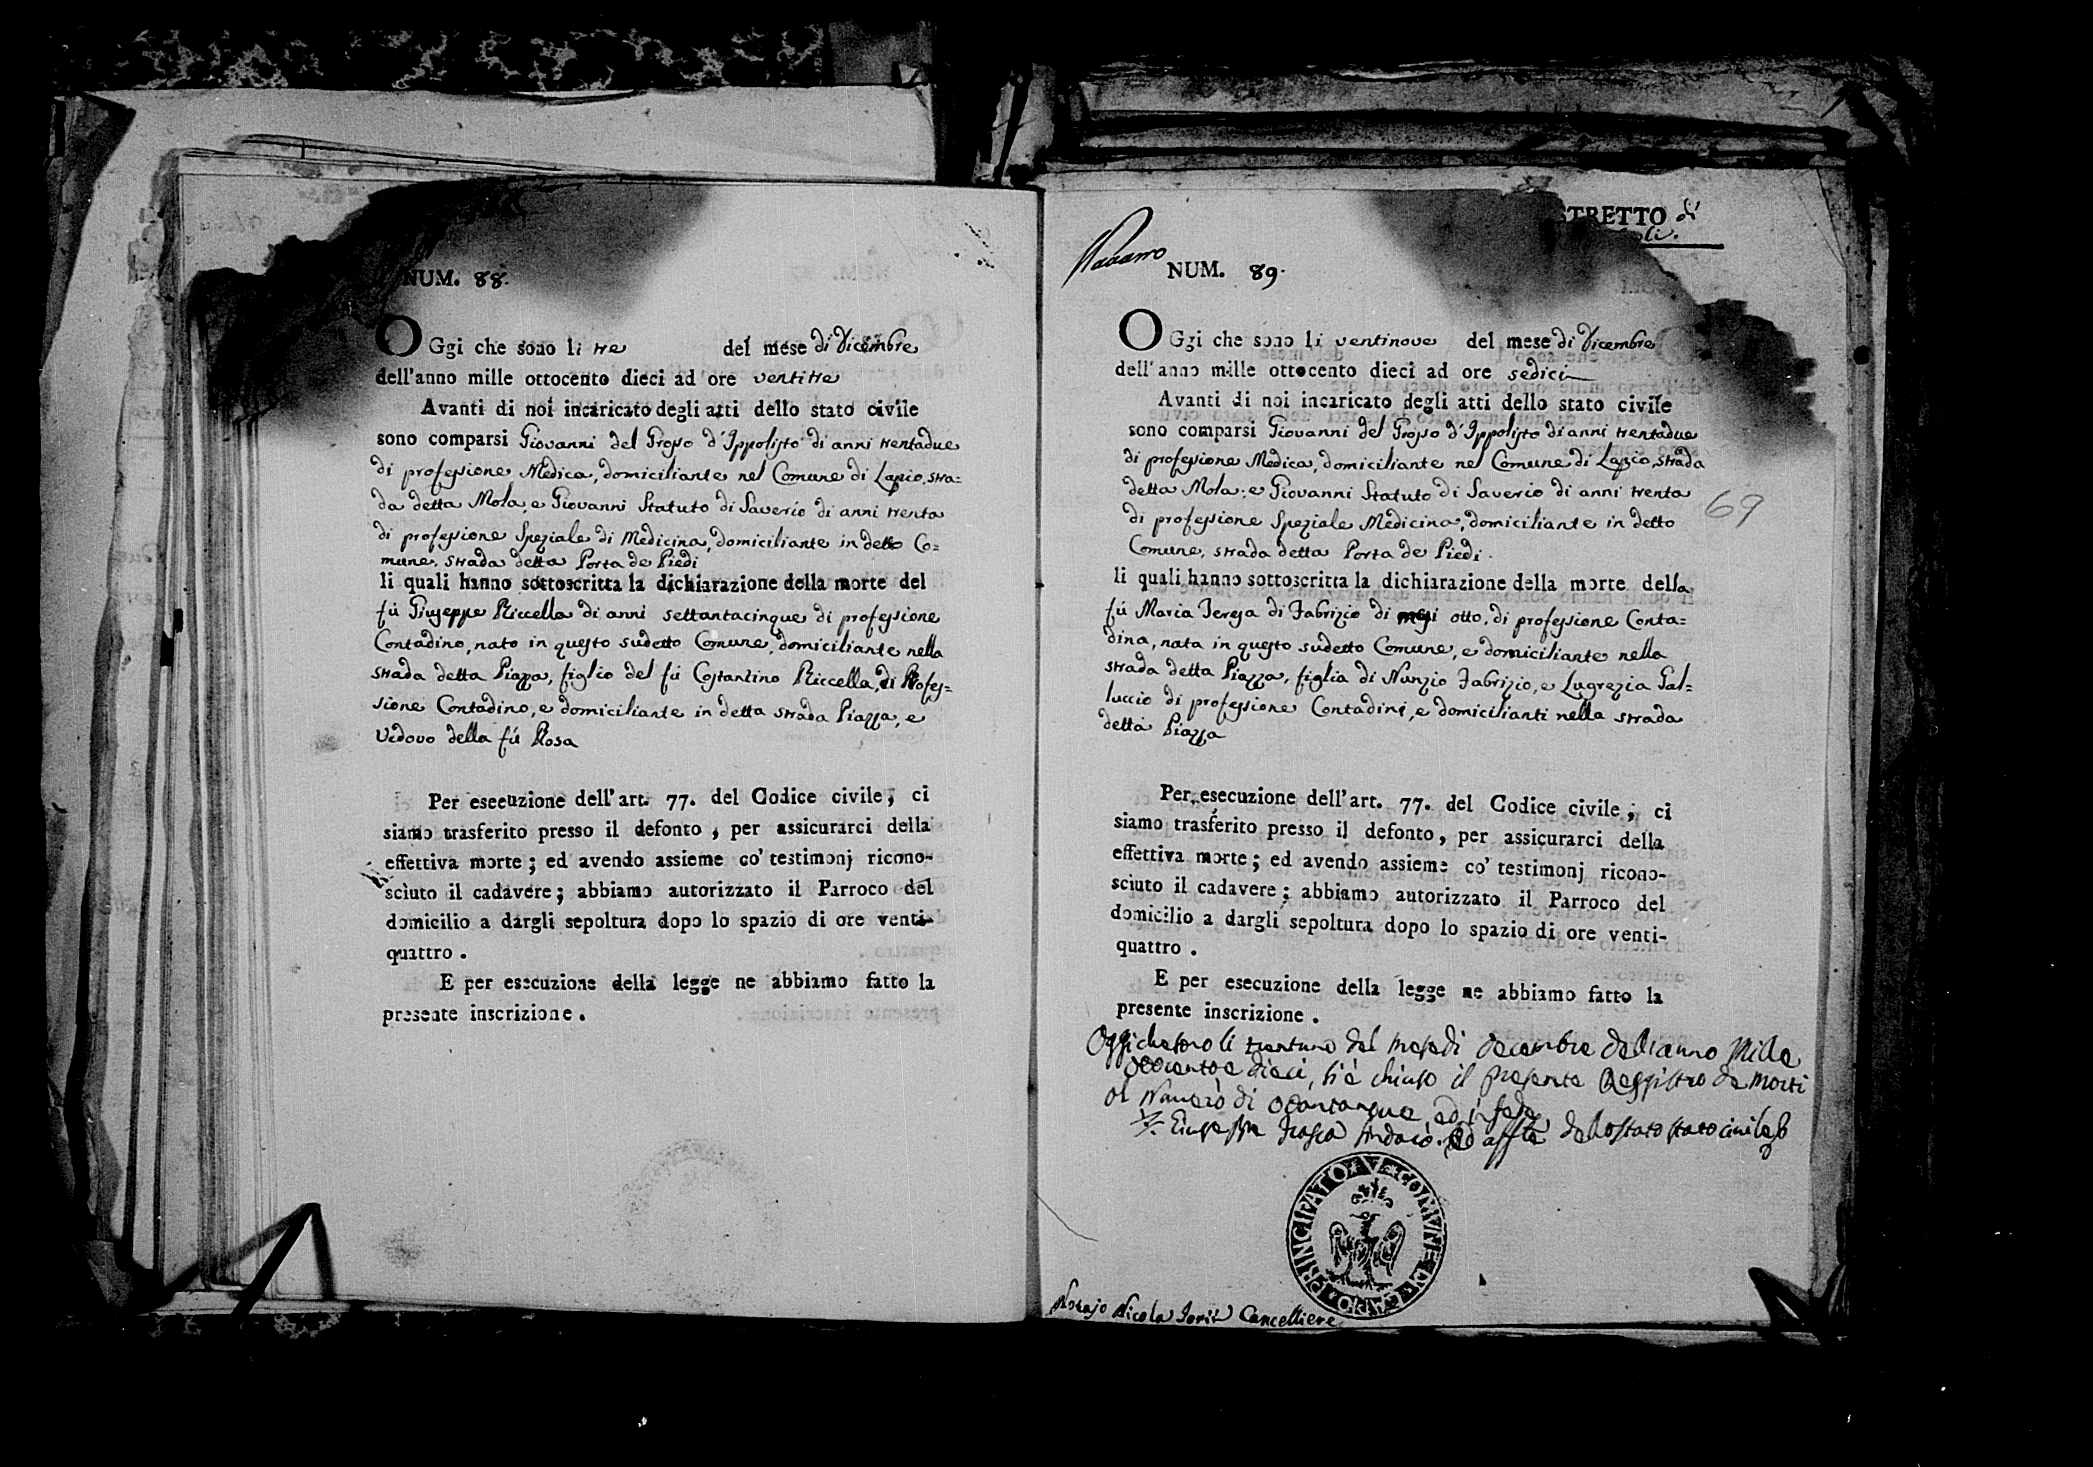 NUM. 88.
OGgi che sono li tre del mese di Dicembre
dell'anno mille ottocento dieci ad ore ventitre
Avanti di noi incaricato degli atti dello stato civile
sono comparsi Giovanni del Grosso d'Ippolisto di anni trentadue
di professione Medica, domiciliante nel Comune di Lapio, stra=
da detta Mola, e Giovanni Statuto di Saverio di anni trenta
di professione Speziale di Medicina, domiciliante in detto Co=
mune, strada detta Porta de Piedi
li quali hanno sottoscritta la dichiarazione della morte del
fù Giuseppe Riccella di anni settantacinque di professione
Contadino, nato in questo sudetto Comune, domiciliante nella
strada detta Piazza, figlio del fù Costantino Riccella, di Profes=
sione Contadino, e domiciliante in detta strada Piazza, e
Vedovo della fù Rosa
Per esecuzione dell'art. 77. del Codice civile, ci
siamo trasferito presso il defonto, per assicurarci della
effettiva morte; ed avendo assieme co' testimonj ricono-
sciuto il cadavere; abbiamo autorizzato il Parroco del
domicilio a dargli sepoltura dopo lo spazio di ore venti-
quattro.
E per esecuzione della legge ne abbiamo fatto la
presente inscrizione.
STRETTO di
oli.
NUM. 89.
OGgi che sono li ventinove del mese di Dicembre
dell'anno mille ottocento dieci ad ore sedici
Avanti di noi incaricato degli atti dello stato civile
sono comparsi Giovanni del Grosso d'Ippolisto di anni trentadue
di professione Medica, domiciliante nel Comune di Lapio, strada
detta Mola; e Giovanni Statuto di Saverio di anni trenta
di professione Speziale Medicina, domiciliante in detto
Comune, strada detta Porta de Piedi.
69
li quali hanno sottoscritta la dichiarazione della morte della
fù Maria Teresa di Fabrizio di mesi otto, di professione Conta=
dina, nata in questo sudetto Comune, e domiciliante nella
strada detta Piazza, figlia di Nunzio Fabrizio, e Lugrezia Gal=
luccio di professione Contadini, e domicilianti nella strada
detta Piazza
Per esecuzione dell'art. 77. del Codice civile, ci
siamo trasferito presso il defonto, per assicurarci della
effettiva morte; ed avendo assieme co' testimonj ricono-
sciuto il cadavere; abbiamo autorizzato il Parroco del
domicilio a dargli sepoltura dopo lo spazio di ore venti-
quattro.
E per esecuzione della legge ne abbiamo fatto la
presente inscrizione.
Oggi che sono li trentuno del mese di decembre dell'anno Mille
ottocento e dieci, si è chiuso il presente Reggistro de morti
al Numero di ed in fede
Giuseppe sindaco dello stato stato civile
PRINCIPATO COMUNE DI LAPIO
Notajo Nicola Cancelliere